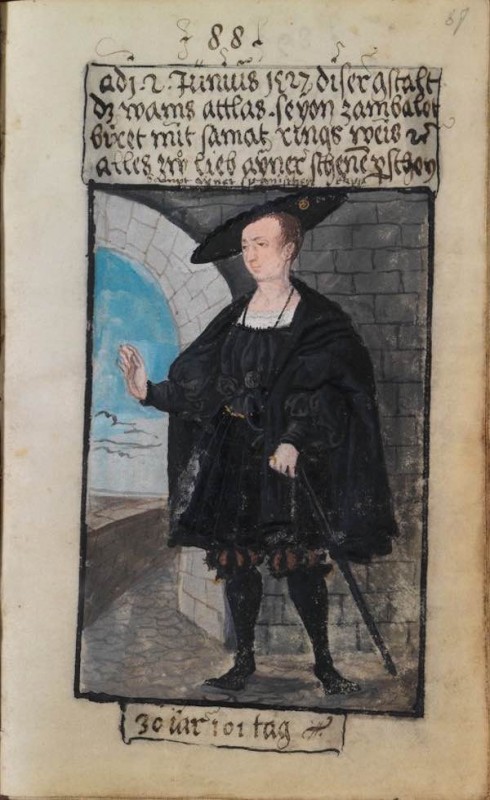 88
adj. 2. Junius 1527 diser gstalt
dz wams attlas. seyon zambalot
biret mit samat rings weis
alles zu lieb ayner schenē pschon
ayner
30 iar 101 tag